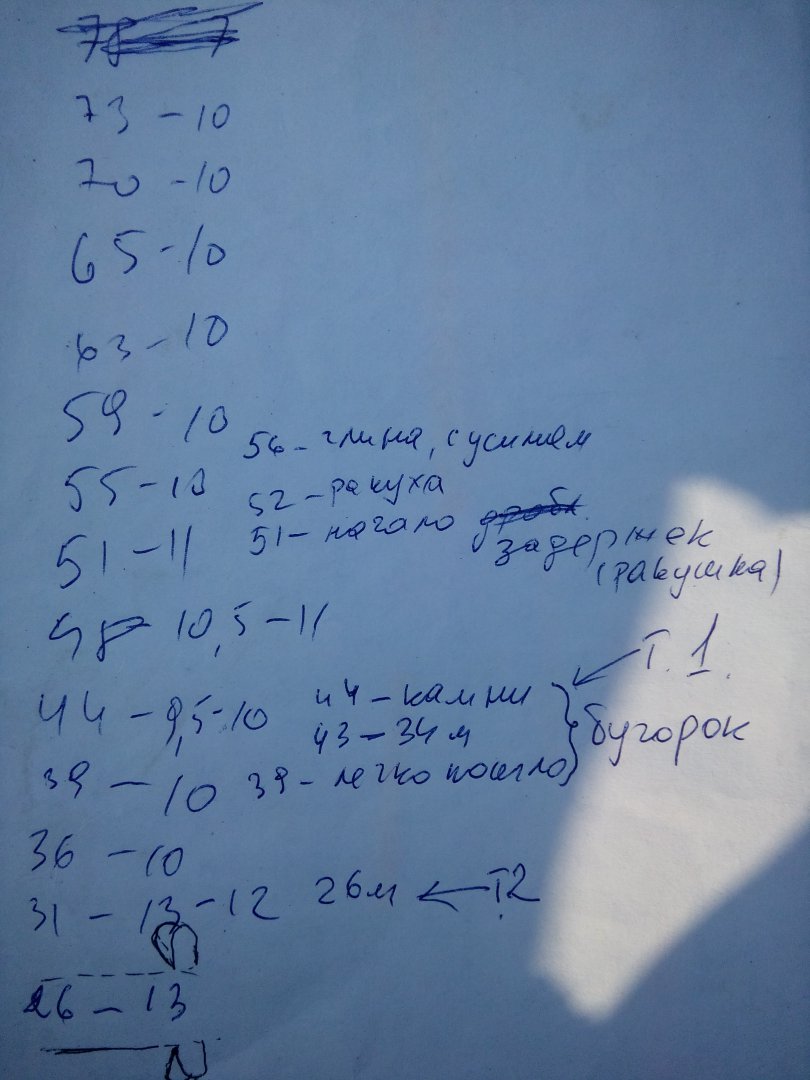 78 7
73 - 10
70 - 10
65 - 10
63 - 10
59 - 10
56 - глина, с усилием
55 - 10
52 - ракуха
51 - начало дробь
задержек
(ракушка)
51 - 11
48 - 10,5 - 11
Т. 1.
44 - 9,5 - 10 44 - камни
43 - 34 м
бугорок
39 - 10 39 - легко пошло
36 - 10
31 - 13 - 12 26м ← Т.2
26 - 13